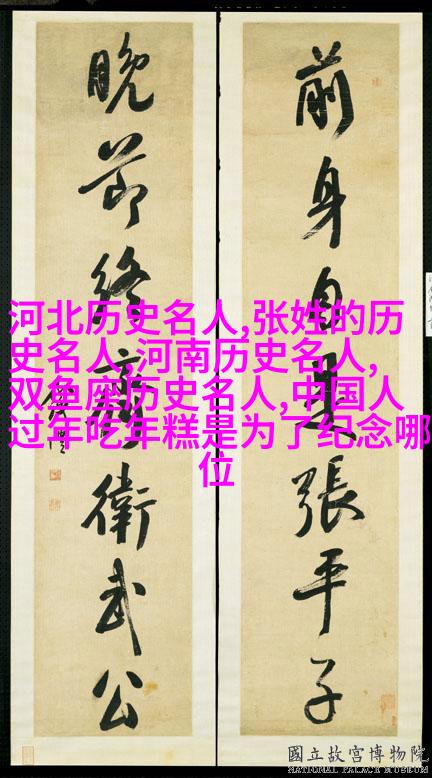 前身自是張平子
晚節終齊衛武公
河北历史名人,张姓的历
史名人,河南历史名人,
双鱼座历史名人,中国人
过年吃年糕是为了纪念哪
位
國立故宮博物院
NATIONAL PALACE MUSEUM